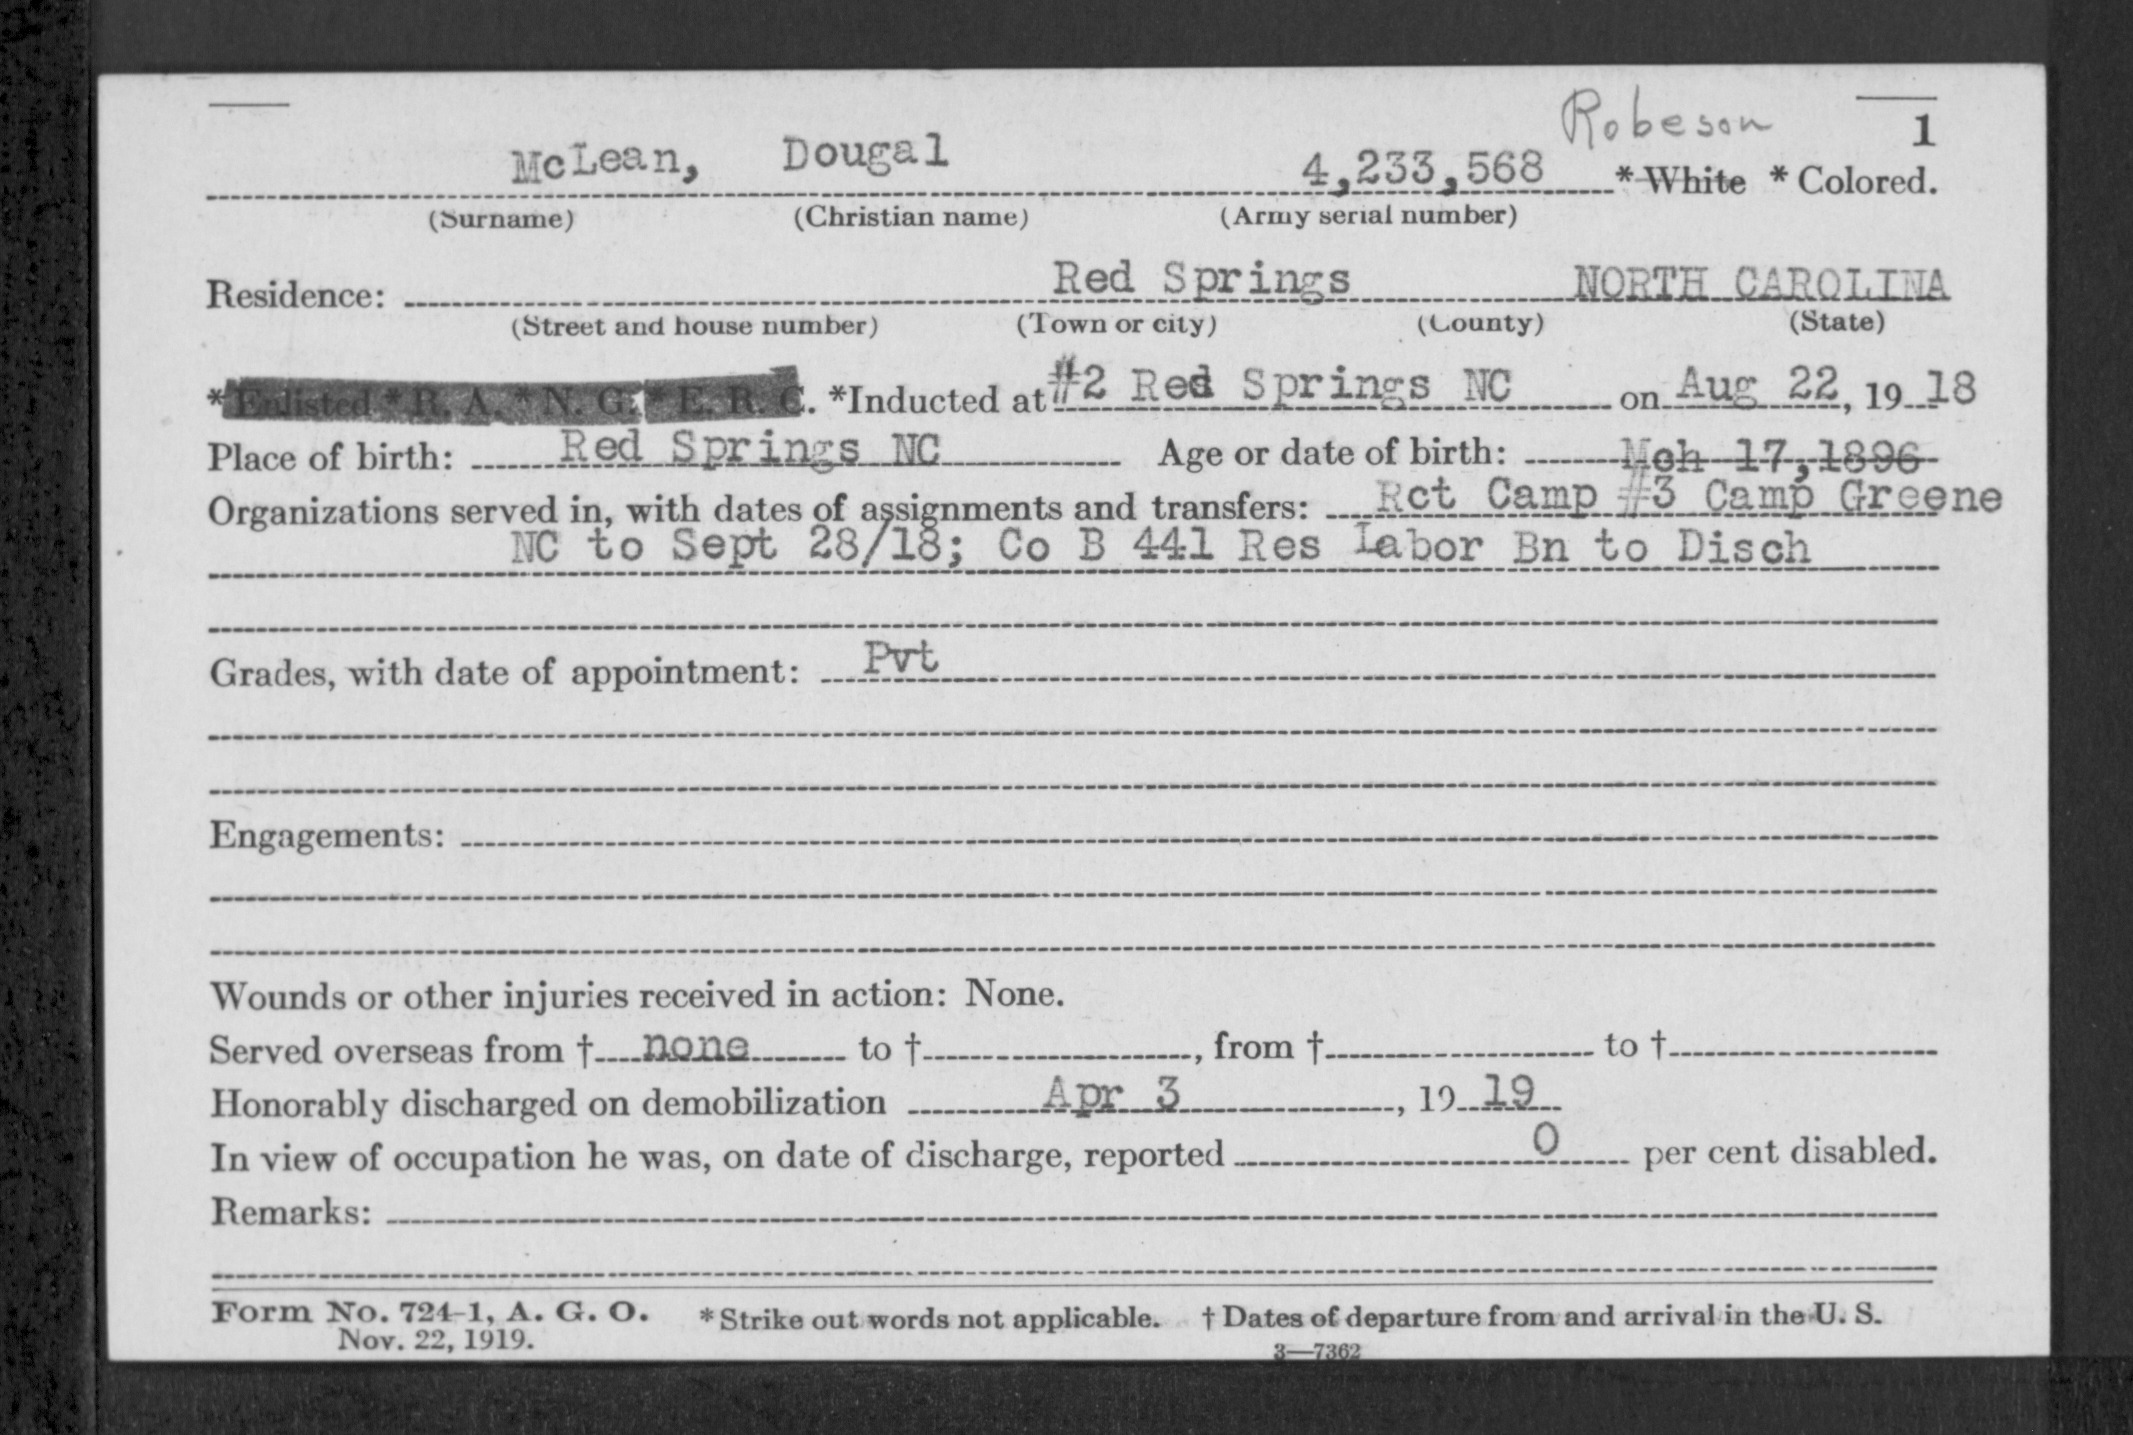 Robeson
1
McLean, Dougal 4,233,568 *White *Colored.
(Surname) (Christian name) (Army serial number)
Residence: Red Springs NORTH CAROLINA
(Street and house number) (Town or city) (County) (State)
*Enlisted *R. A. *N. G. *E. R. C. *Inducted at #2 Red Springs NC on Aug 22, 19 18
Place of birth: Red Springs NC Age or date of birth: Mch 17, 1896
Organizations served in, with dates of assignments and transfers: Rct Camp #3 Camp Greene
NC to Sept 28/18; Co B 441 Res Labor Bn to Disch
Grades, with date of appointment: Pvt
Engagements:
Wounds or other injuries received in action: None.
Served overseas from † none to †, from † to †
Honorably discharged on demobilization Apr 3, 19 19
In view of occupation he was, on date of discharge, reported 0 per cent disabled.
Remarks:
Form No. 724-1, A. G. O. *Strike out words not applicable. † Dates of departure from and arrival in the U. S.
Nov. 22, 1919. 3—7362